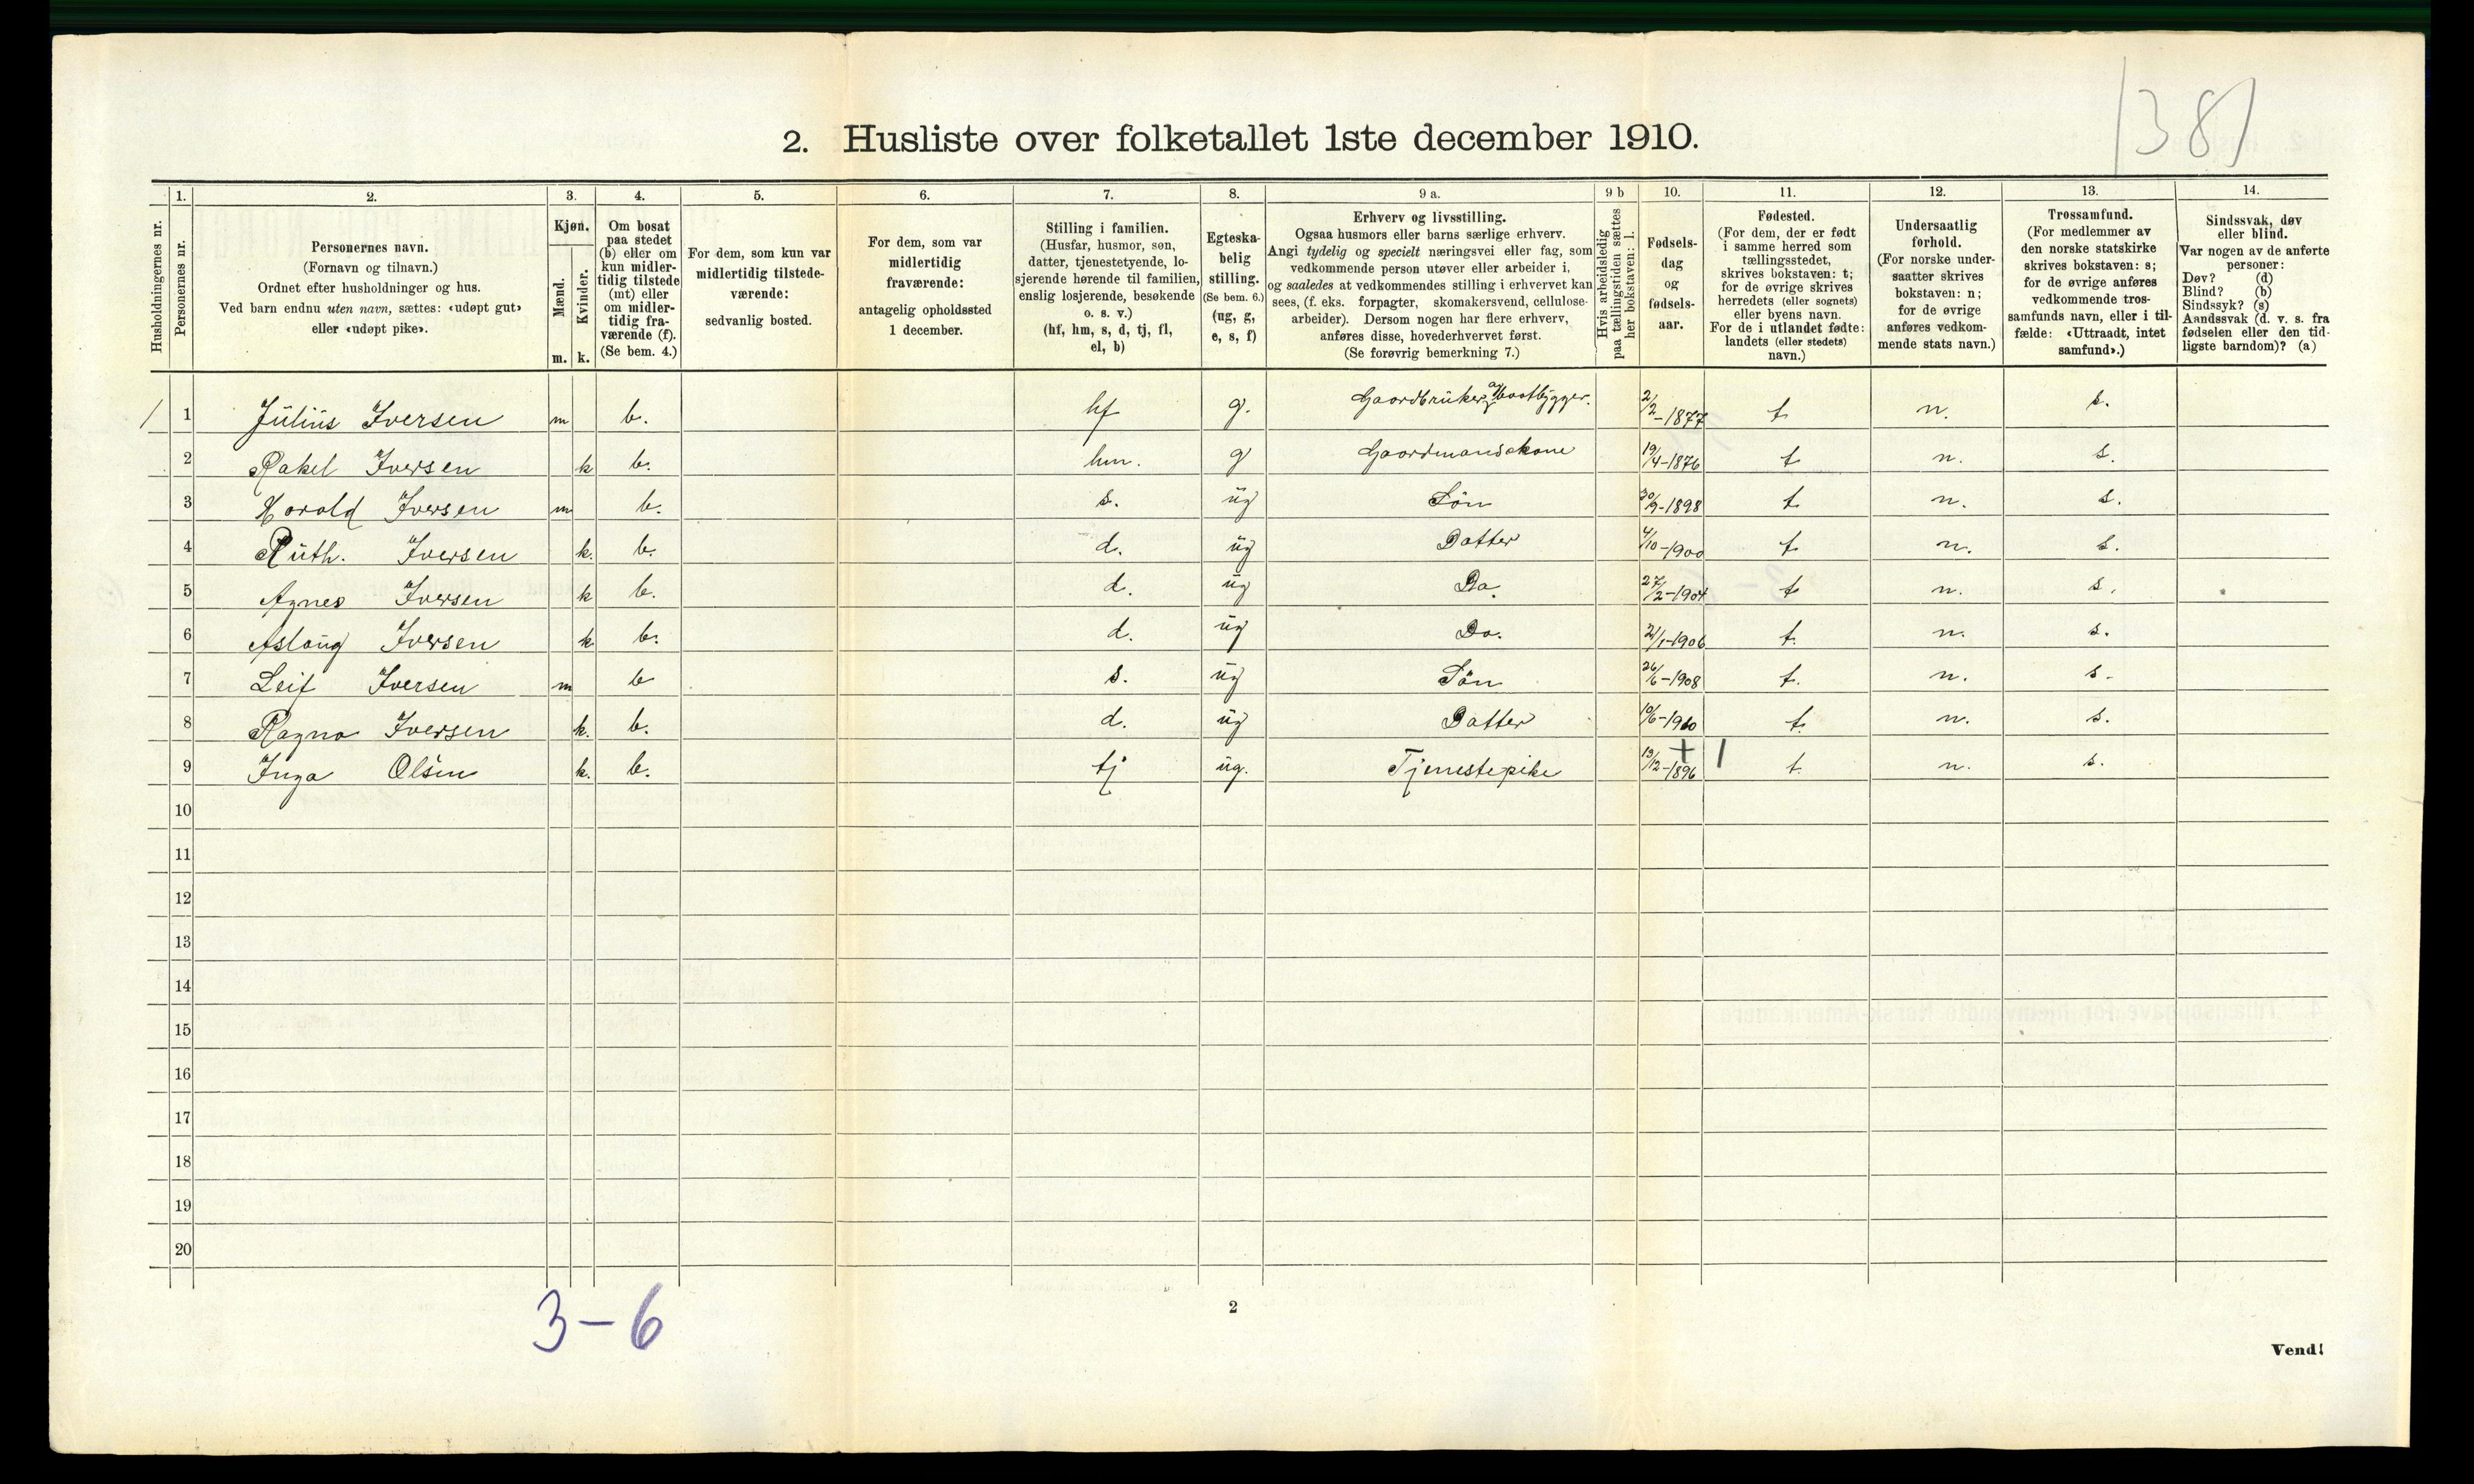 1381
2. Husliste over folketallet 1ste december 1910.
Husholdningernes nr.
1. Personernes nr.
2. Personernes navn.
(Fornavn og tilnavn.)
Ordnet efter husholdninger og hus.
Ved barn endnu uten navn, sættes: «udøpt gut»
eller «udøpt pike».
3. Kjøn.
Mænd. Kvinder.
m. k.
4. Om bosat
paa stedet
(b) eller om
kun midler-
tidig tilstede
(mt) eller
om midler-
tidig fra-
værende (f).
(Se bem. 4.)
5. For dem, som kun var
midlertidig tilstede-
værende:
sedvanlig bosted.
6. For dem, som var
midlertidig
fraværende:
antagelig opholdssted
1 december.
7. Stilling i familien.
(Husfar, husmor, søn,
datter, tjenestetyende, lo-
sjerende hørende til familien,
enslig losjerende, besøkende
o. s. v.)
(hf, hm, s, d, tj, fl,
el, b)
8. Egteska-
belig
stilling.
(Se bem. 6.)
(ug, g,
e, s, f)
9 a. Erhverv og livsstilling.
Ogsaa husmors eller barns særlige erhverv.
Angi tydelig og specielt næringsvei eller fag, som
vedkommende person utøver eller arbeider i,
og saaledes at vedkommendes stilling i erhvervet kan
sees, (f. eks. forpagter, skomakersvend, cellulose-
arbeider). Dersom nogen har flere erhverv,
anføres disse, hovederhvervet først.
(Se forøvrig bemerkning 7.)
9 b Hvis arbeidsledig
paa tællingstiden sættes
her bokstaven: l.
10. Fødsels-
dag
og
fødsels-
aar.
11. Fødested.
(For dem, der er født
i samme herred som
tællingsstedet,
skrives bokstaven: t;
for de øvrige skrives
herredets (eller sognets)
eller byens navn.
For de i utlandet fødte:
landets (eller stedets)
navn.)
12. Undersaatlig
forhold.
(For norske under-
saatter skrives
bokstaven: n;
for de øvrige
anføres vedkom-
mende stats navn.)
13. Trossamfund.
(For medlemmer av
den norske statskirke
skrives bokstaven: s;
for de øvrige anføres
vedkommende tros-
samfunds navn, eller i til-
fælde: «Uttraadt, intet
samfund».)
14. Sindssvak, døv
eller blind.
Var nogen av de anførte
personer:
Døv? (d)
Blind? (b)
Sindssyk? (s)
Aandssvak (d. v. s. fra
fødselen eller den tid-
ligste barndom)? (a)
1 1 Julius Iversen m b. hf g. Gaardbruker og Baatbygger. 2/2-1877 t n. s.
2 Rakel Iversen k b. hm. g Gaardmandskone 19/4-1876 t n. s.
3 Harald Iversen m b. s. ug Søn 30/9-1898 t n. s.
4 Ruth. Iversen k. b. d. ug Datter 4/10-1900 t n. s.
5 Agnes Iversen k b. d. ug Do. 27/2-1904 t n. s.
6 Aslaug Iversen k b. d. ug Do. 2/1-1906 t. n. s.
7 Leif Iversen m b s. ug Søn 26/6-1908 t. n. s.
8 Ragna Iversen k. b. d. ug Datter 10/6-1910 t. n. s.
9 Inga Olsen k. b. tj ug. Tjenestepike 13/12-1896 + 1 t. n. s.
10
11
12
13
14
15
16
17
18
19
20
3-6
2
Vend!